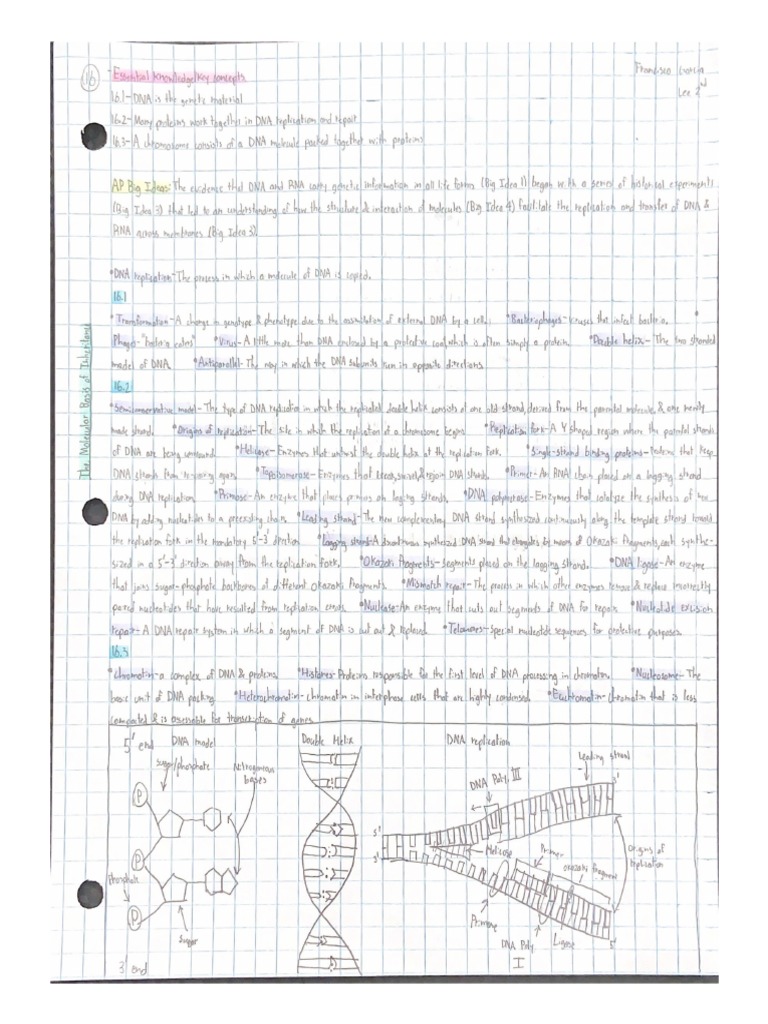 16
-Essential knowledge/key concepts
Francisco Garcia
Lee 2nd
16.1-DNA is the genetic material
16.2-Many proteins work together in DNA replication and repair
16.3-A chromosome consists of a DNA molecule packed together with proteins
AP Big Ideas: The evidence that DNA and RNA carry genetic information in all life forms (Big Idea 1) began with a series of historical experiments
(Big Idea 3) that led to an understanding of how the structure & interaction of molecules (Big Idea 4) facilitate the replication and transfer of DNA &
RNA across membranes (Big Idea 3).
The Molecular Basis of Inheritance
*DNA replication-The process in which a molecule of DNA is copied.
16.1
*Transformation-A change in genotype & phenotype due to the assimilation of external DNA by a cell. *Bacteriophages-viruses that infect bacteria. *
Phages- *Virus-A little more than DNA enclosed by a protective coat, which is often simply a protein. *Double helix- The two stranded
model of DNA. *Antiparallel-The way in which the DNA subunits run in opposite directions.
16.2
*Semiconservative model-The type of DNA replication in which the replicated double helix consists of one old strand, derived from the parental molecule, & one newly
made strand. *Origins of replication-The site in which the replication of a chromosome begins. *Replication fork-A Y shaped region where the parental strands
of DNA are being unwound. *Helicase-Enzymes that untwist the double helix at the replication fork. *Single-strand binding proteins-Proteins that keep
DNA strands from re-pairing again. *Topoisomerase-Enzymes that break, swivel, & rejoin DNA strands. *Primer-An RNA chain placed on a lagging strand
during DNA replication. *Primase-An enzyme that places primers on lagging strands. *DNA polymerase-Enzymes that catalyze the synthesis of new
DNA by adding nucleotides to a preexisting chain. *Leading strand-The new complementary DNA strand synthesized continuously along the template strand toward
the replication fork in the mandatory 5'-3' direction. *Lagging strand-A discontinuous synthesized DNA strand that elongates by means of Okazaki fragments, each synthe-
sized in a 5'-3' direction away from the replication fork. *Okazaki fragments-Segments placed on the lagging strand. *DNA ligase-An enzyme
that joins sugar-phosphate backbones of different okazaki fragments. *Mismatch repair-The process in which other enzymes remove & replace incorrectly
paired nucleotides that have resulted from replication errors. *Nuclease-An enzyme that cuts out segments of DNA for repair. *Nucleotide excision
repair-A DNA repair system in which a segment of DNA is cut out & replaced. *Telomeres-special nucleotide sequences for protective purposes.
16.3
*Chromatin-a complex of DNA & proteins. *Histones-Proteins responsible for the first level of DNA processing in chromatin. *Nucleosome-The
basic unit of DNA packing. *Heterochromatin-chromatin in interphase cells that are highly condensed. *Euchromatin-chromatin that is less
compacted & is accessible for transcription of genes.
5' end DNA model
Sugar/phosphate
Nitrogenous
bases
P
P
Phosphate
P
Sugar
3' end
Double Helix
DNA replication
Leading strand
3'
DNA Poly. III
5'
3'
Helicase
Primer
Okazaki fragment
Origins of
replication
Primase
DNA Poly.
I
Ligase
5'